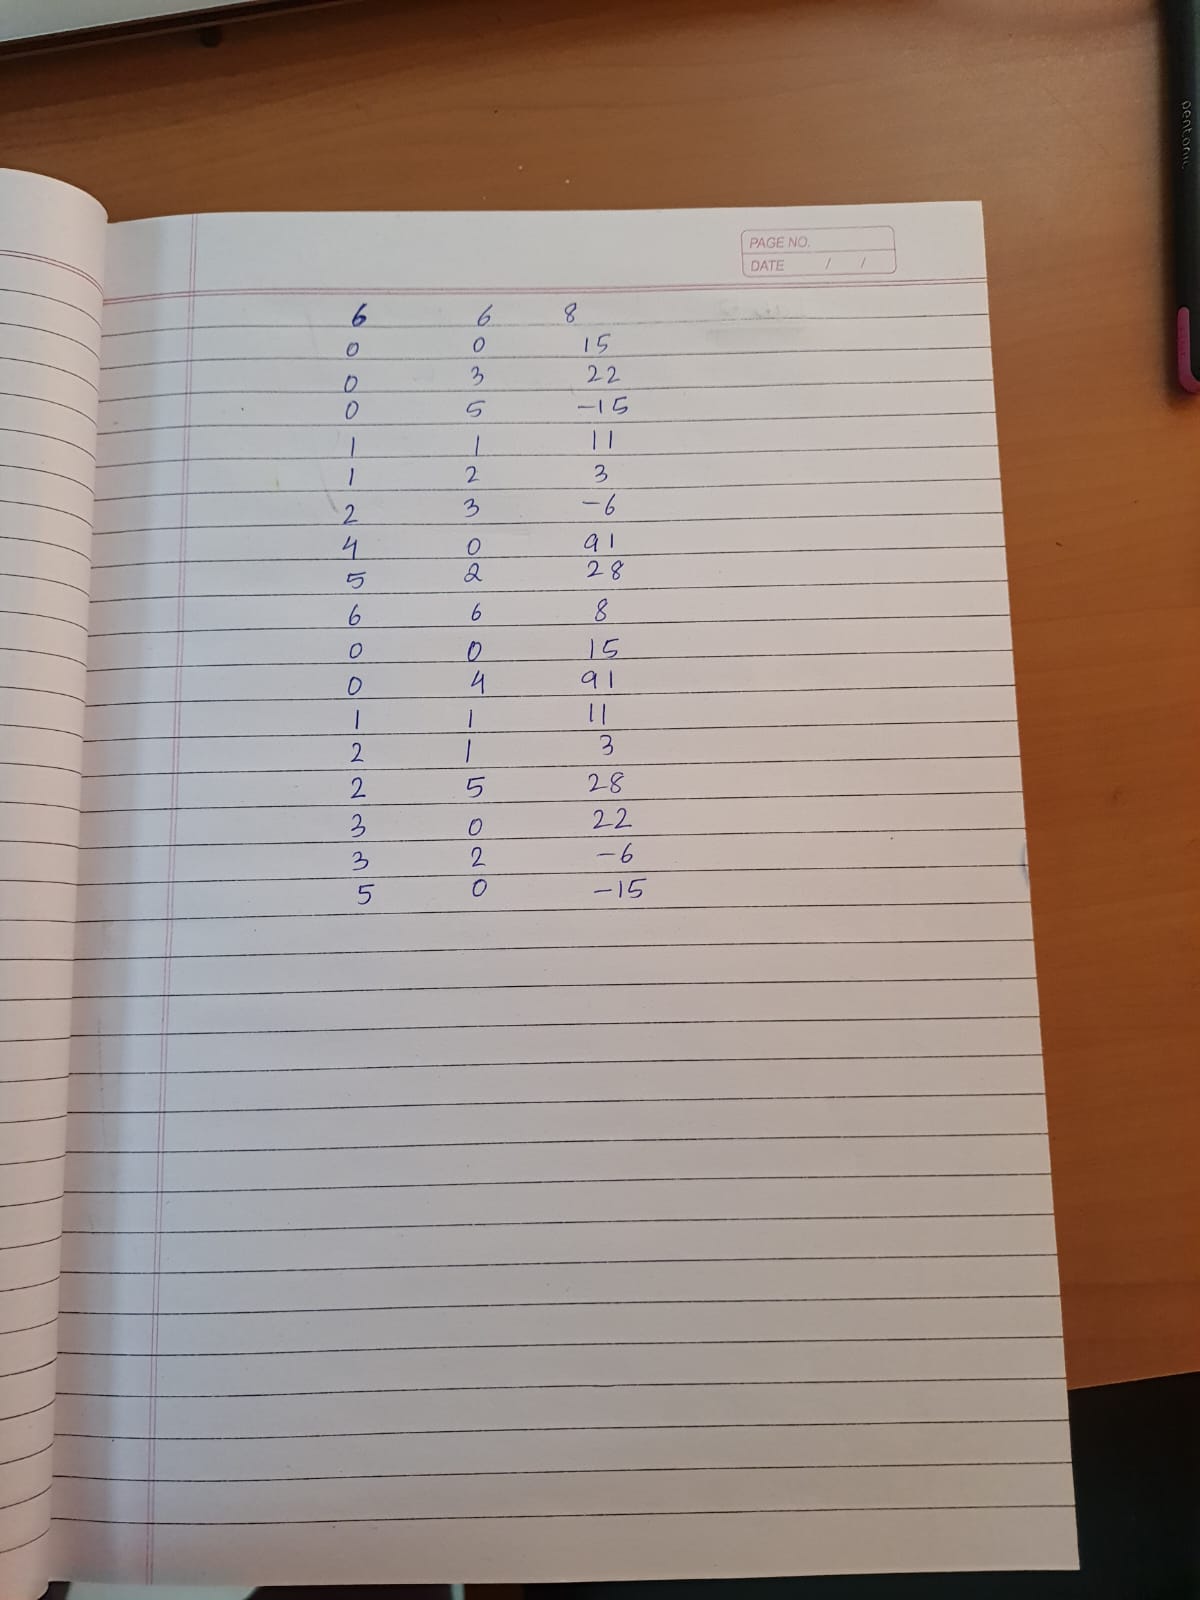 pentonic
PAGE NO.
DATE / /
6 6 8
0 0 15
0 3 22
0 5 -15
1 1 11
1 2 3
2 3 -6
4 0 91
5 2 28
6 6 8
0 0 15
0 4 91
1 1 11
2 1 3
2 5 28
3 0 22
3 2 -6
5 0 -15